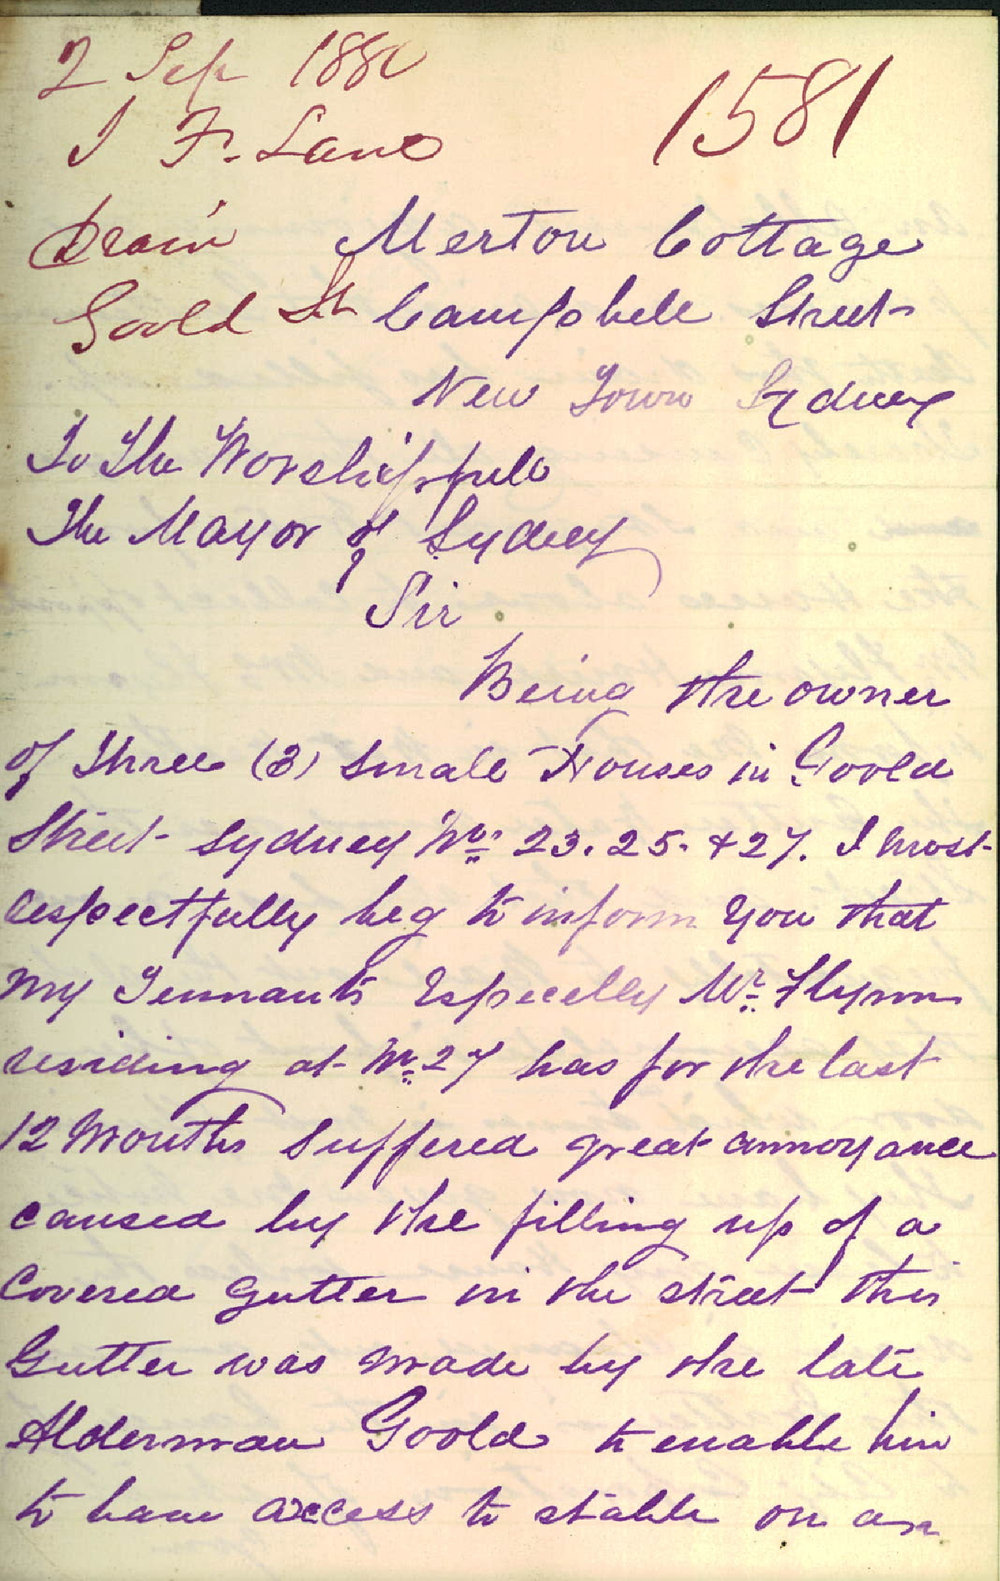 2 Sep 1880
J F. Lane
1581
Drain
Goold St
Merton Cottage
Campbell Street
New Town Sydney
To The Worshipfull
The Mayor of Sydney
Sir
Being the owner
of Three (3) Small Houses in Goold
Street Sydney Nos. 23. 25. & 27. I most
respectfully beg to inform you that
my Tennants Especelly Mr. Flynn
residing at No. 27 has for the last
12 Months Suffered great annoyance
caused by the filling up of a
Covered gutter in the street this
Gutter was made by the late
Alderman Goold to enable him
to have access to stable on an